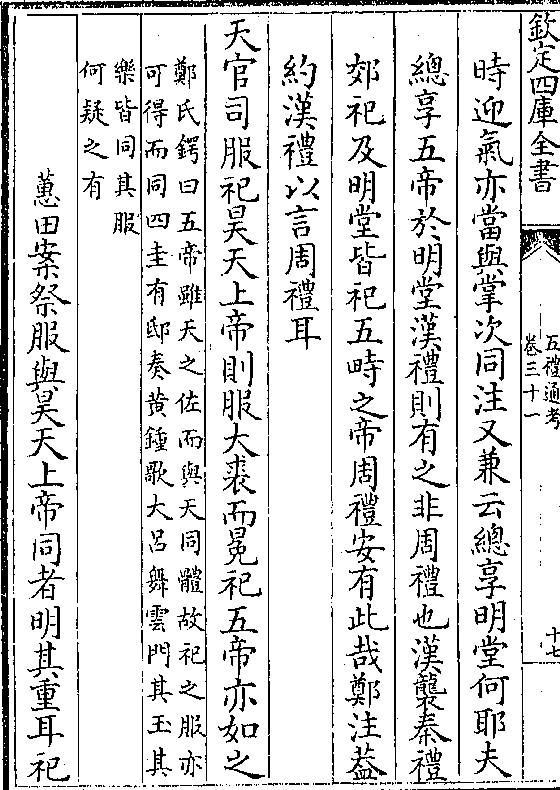 欽定四庫全書
五禮通考
卷三十一
十七
時迎氣亦當與掌次同注又兼云總享明堂何耶夫
總享五帝於明堂漢禮則有之非周禮也漢襲秦禮
郊祀及明堂皆祀五畤之帝周禮安有此哉鄭注葢
約漢禮以言周禮耳
天官司服祀昊天上帝則服大裘而冕祀五帝亦如之
鄭氏鍔曰五帝雖天之佐而與天同體故祀之服亦
可得而同四圭有邸奏黄鍾歌大吕舞雲門其玉其
樂皆同其服
何疑之有
蕙田案祭服與昊天上帝同者明其重耳祀